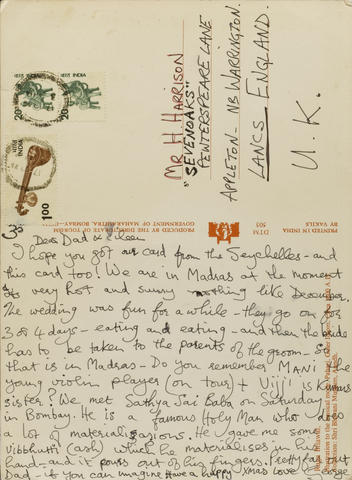 Mr H. HARRISON
"SEVENOAKS"
PEWTERSPEARE LANE
APPLETON - NB WARRINGTON.
LANCS ENGLAND.
U.K.
20 भारत INDIA
20 भारत INDIA
1.00 भारत INDIA
PRINTED IN INDIA
BY VAKILS
DTM
505
PRODUCED BY THE DIRECTORATE OF TOURISM
GOVERNMENT OF MAHARASHTRA, BOMBAY
ॐ Dear Dad & Eileen
I hope you got our card from the Seychelles - and
this card too! We are in Madras at the moment
very hot and sunny nothing like December.
The wedding was fun for a while - they go on for
3 or 4 days - eating and eating - and then the bride
has to be taken to the parents of the groom - So
that is in Madras - Do you remember MANI the
young violin player (on tour) + Viji is Kumars
sister? We met Sathya Sai Baba on Saturday
in Bombay. He is a famous Holy Man who does
a lot of materialisasions. He gave me some
Vibbhutti (ash) which he materialises in his
hand - and it pours out of his fingers. Pretty far out
Dad - if you can imagine Have a happy Xmas Love George